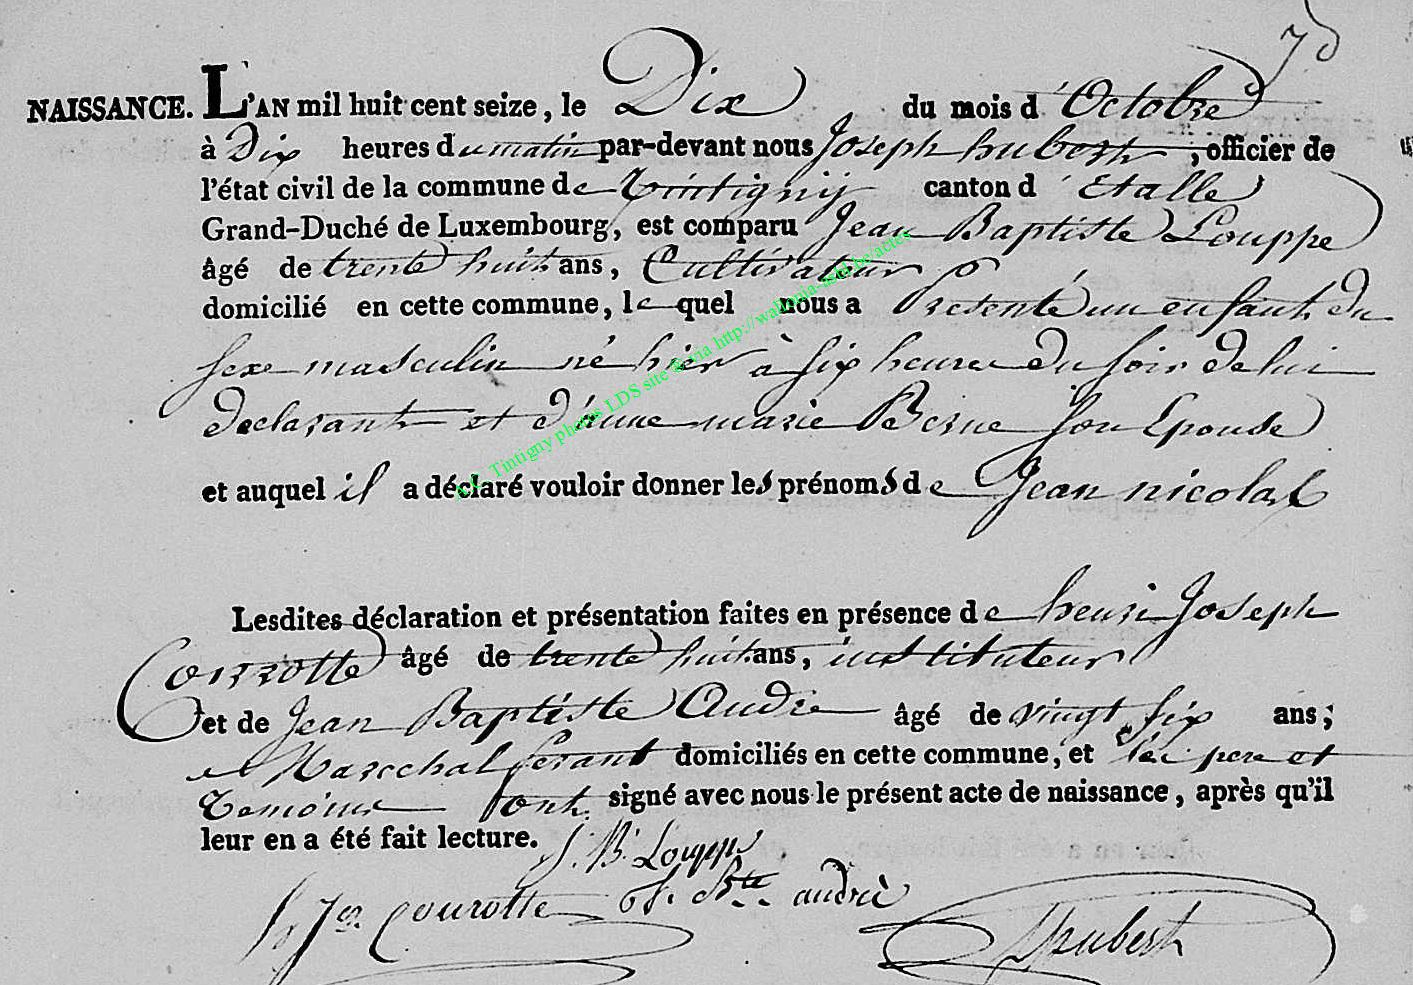 70
NAISSANCE. L'AN mil huit cent seize, le Dix du mois d'Octobre
à Dix heures du matin par-devant nous Joseph hubert, officier de
l'état civil de la commune de Tintigny canton d'Etalle
Grand-Duché de Luxembourg, est comparu Jean Baptiste Louppe
âgé de trente huit ans, Cultivateur
domicilié en cette commune, lequel nous a Presenté un enfant du
sexe masculin né hier à six heures du soir de lui
declarant et d'anne marie Berne son Epouse
et auquel il a déclaré vouloir donner les prénoms de Jean nicolas
Lesdites déclaration et présentation faites en présence de henri Joseph
Courrotte âgé de trente huit ans, instituteur
et de Jean Baptiste Andre âgé de vingt six ans;
Marechal ferant domiciliés en cette commune, et les pere et
temoins ont signé avec nous le présent acte de naissance, après qu'il
leur en a été fait lecture.
J. B. Louppe
h Jos. Courotte J. Bte. andré
Hubert
A.C. Tintigny photos LDS site & via http://wallonia-asbl.be/actes